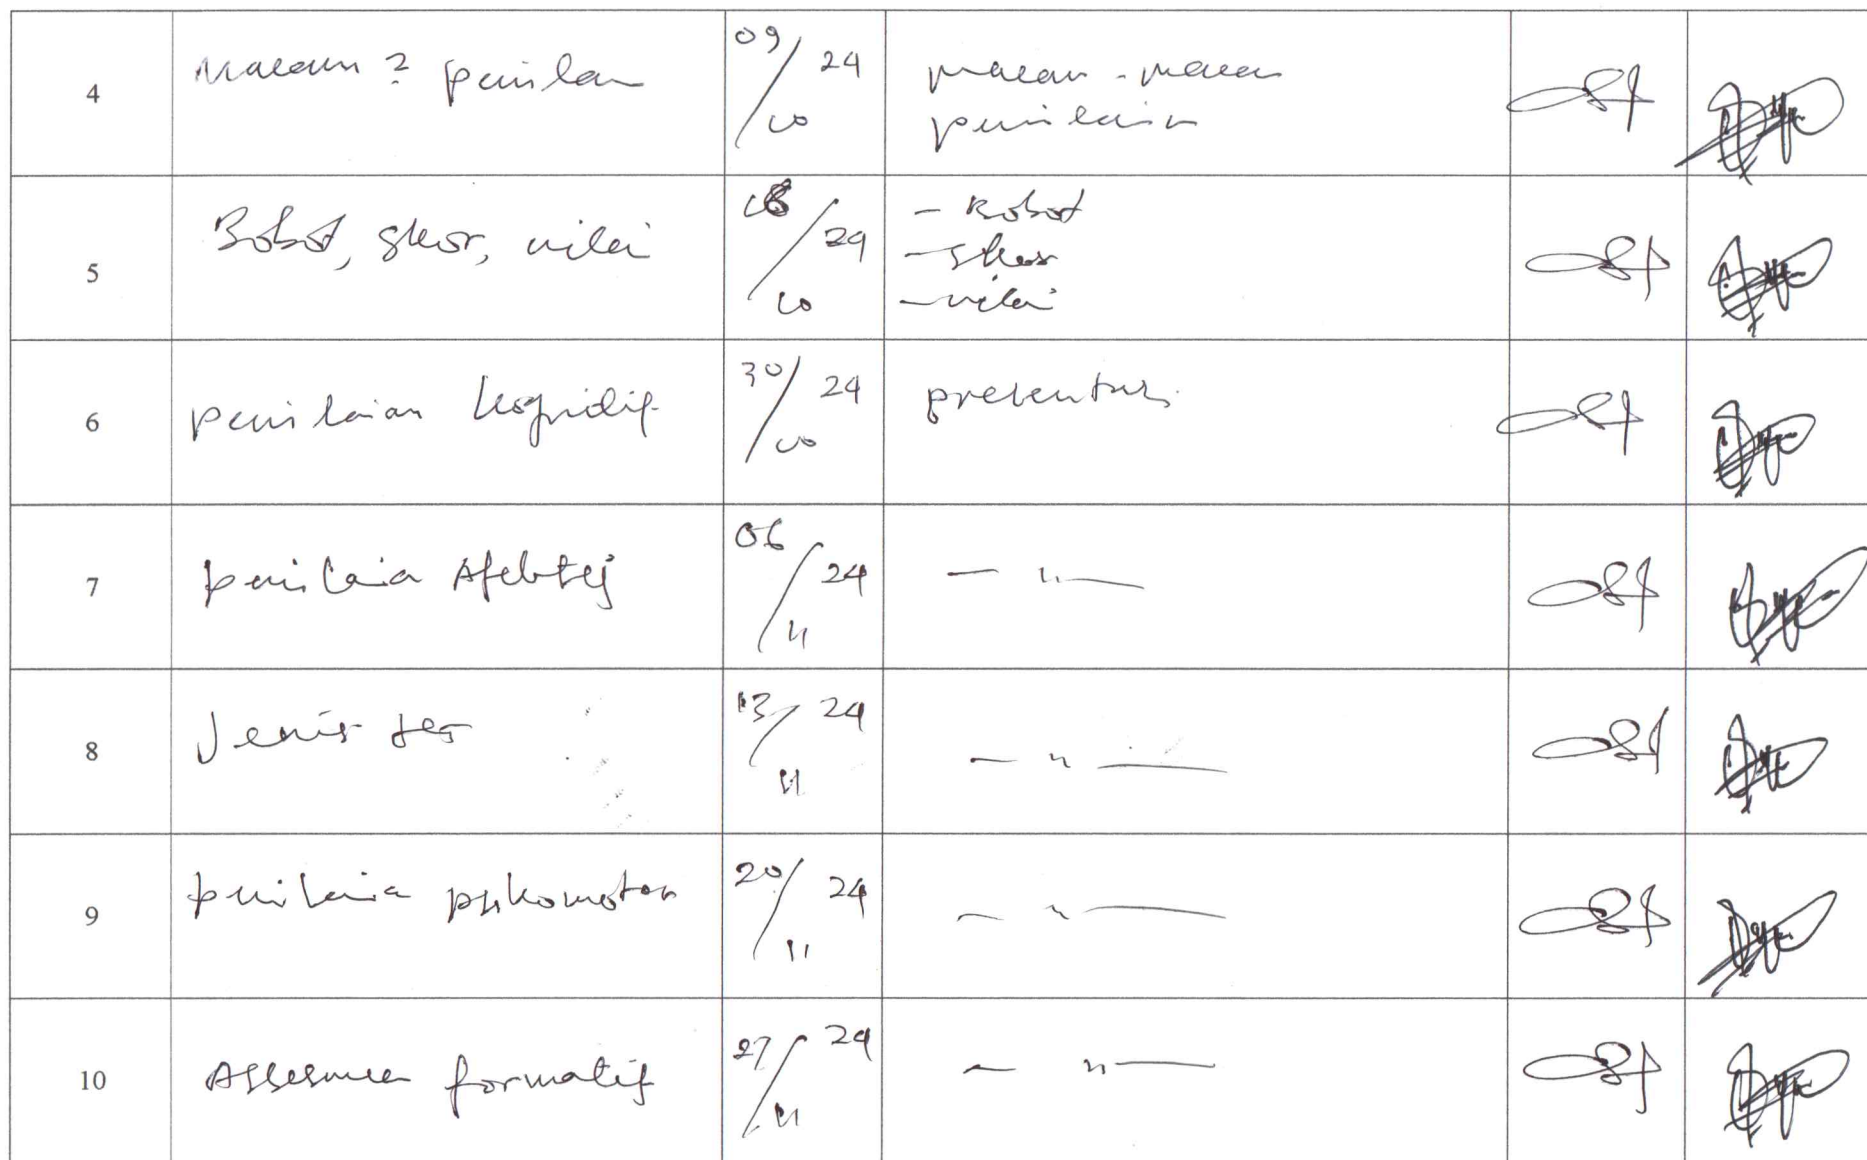 4
Macam 2 penilan
09/10 24
macam - macam
penilaian
5
Bobot, skor, nilai
16/10 24
- Bobot
- Skor
- nilai
6
penilaian kognitif
30/10 24
presentasi
7
penilaia Afektif
06/11 24
— " —
8
Jenis tes
13/11 24
— " —
9
penilaia psikomotor
20/11 24
— " —
10
Assesmen formatif
27/11 24
— " —